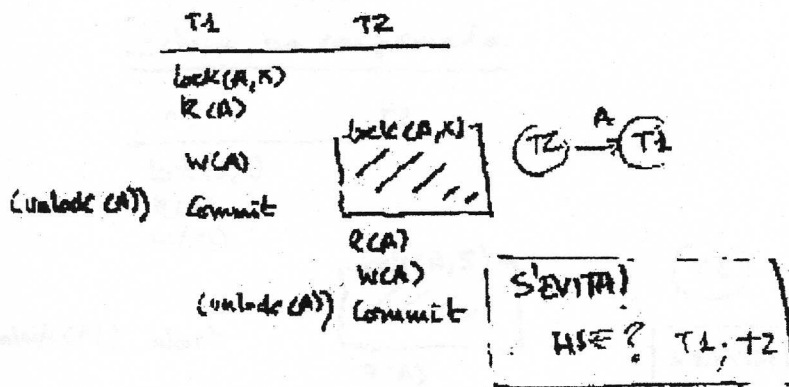 T1 T2
lock(A,X)
R(A)
lock(A,X)
A
T2 T1
W(A)
(unlock(A)) Commit
R(A)
W(A)
(unlock(A)) Commit
S'EVITA!
HSE? T1; T2